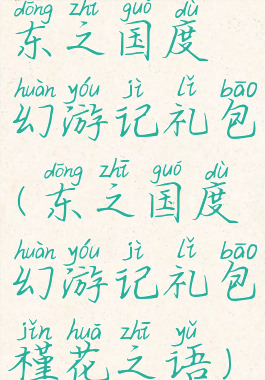 dōng zhī guó dù
东之国度
huàn yóu jì lǐ bāo
幻游记礼包
dōng zhī guó dù
(东之国度
huàn yóu jì lǐ bāo
幻游记礼包
jǐn huā zhī yǔ
槿花之语)